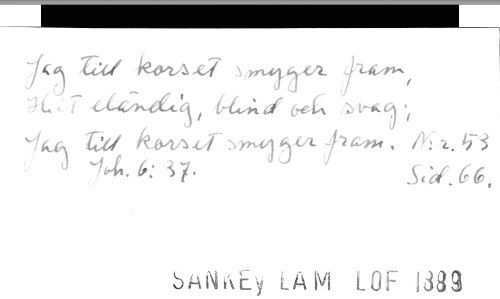 Jag till korset smyger fram,
Hält eländig, blind och svag;
Jag till korset smyger fram. N:r. 53
Joh. 6: 37. Sid. 66.
SANKEY LAM LOF 1889